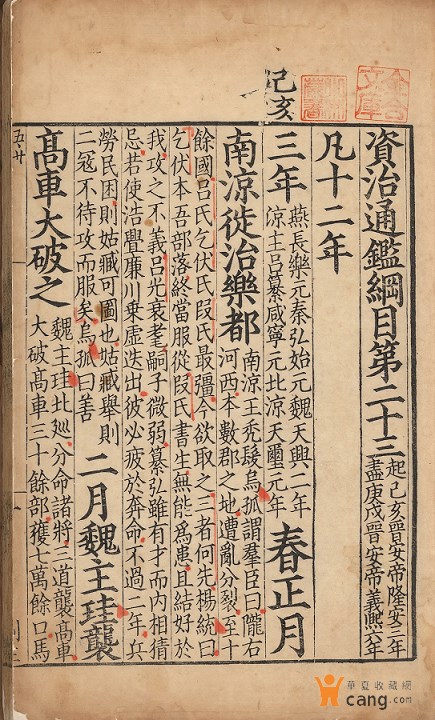 己亥
資治通鑑綱目第二十三
起己亥晉安帝隆安三年
盡庚戌晉安帝義熙六年
凡十二年
三年
燕長樂元秦弘始元魏天興二年
涼王呂纂咸寧元北涼天璽元年
春正月
南涼徙治樂都
南涼王禿髮烏孤謂羣臣曰隴右
河西本數郡之地遭亂分裂至十
餘國呂氏乞伏氏段氏最彊今欲取之三者何先楊統曰
乞伏本吾部落終當服從段氏書生無能爲患且結好於
我攻之不義呂光衰耄嗣子微弱纂弘雖有才而内相猜
忌若使浩亹廉川乗虚迭出彼必疲於奔命不過二年兵
勞民困則姑臧可圖也姑臧舉則
二寇不待攻而服矣烏孤曰善
二月魏主珪襲
高車大破之
魏主珪北廵分命諸將三道襲高車
大破高車三十餘部獲七萬餘口馬
五廿
華夏收藏網
cang.com